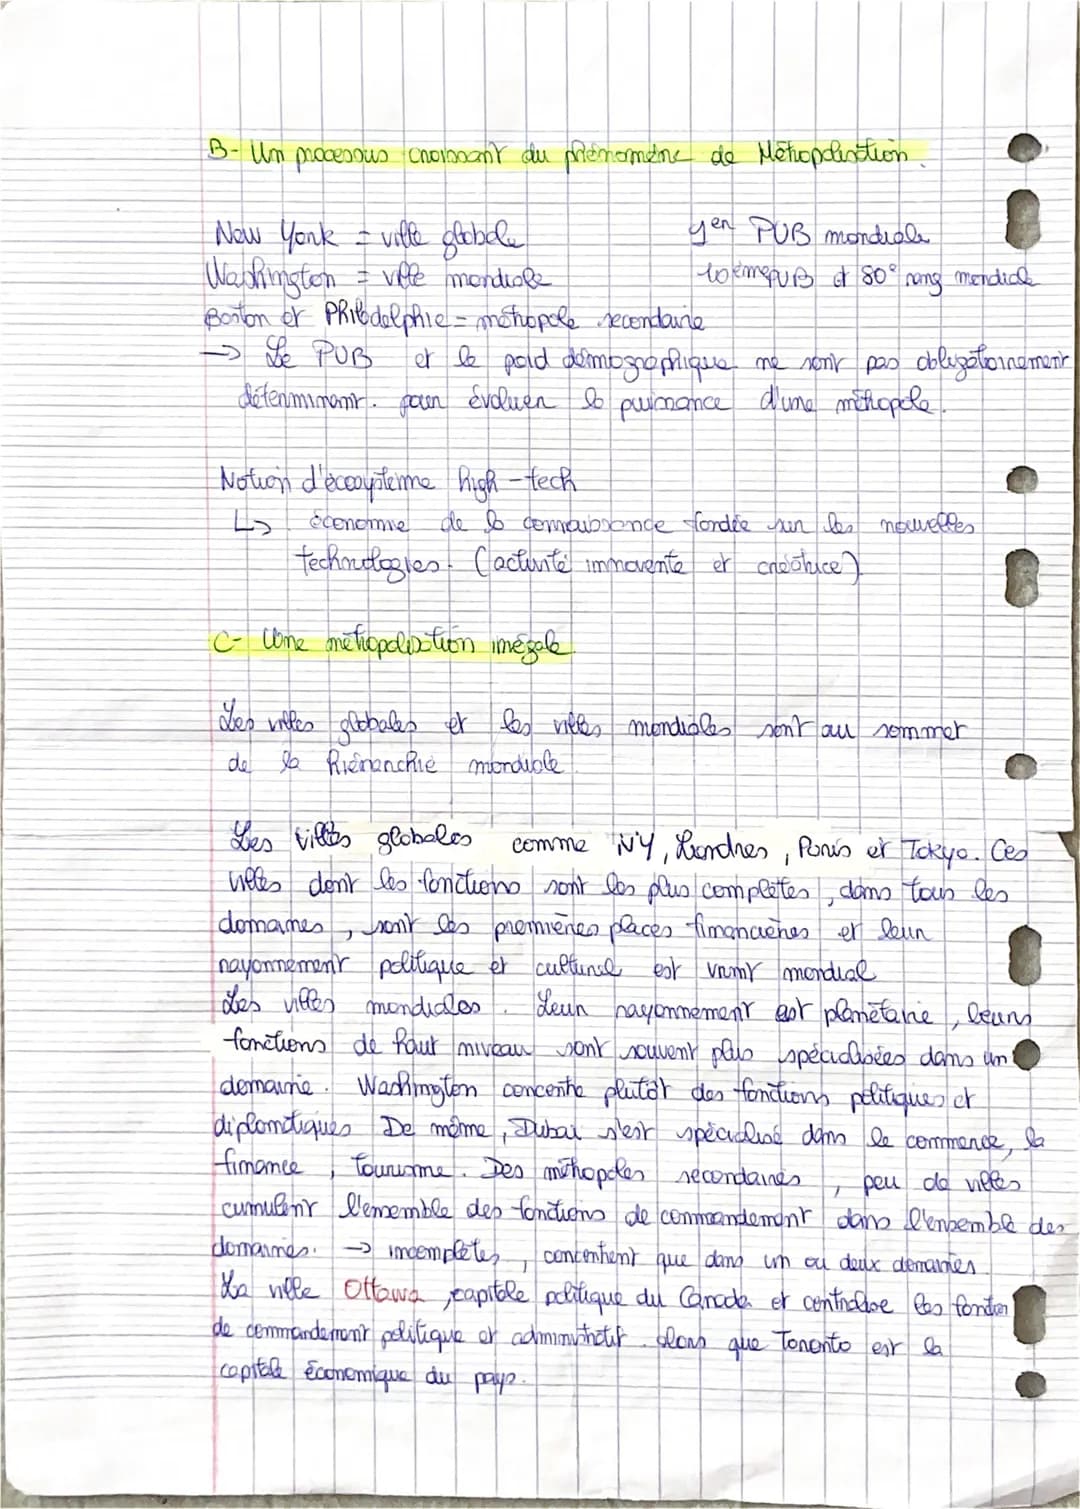 B- Un processus croissant du phénomène de Métropolisation.
New York = ville globale 1er PUB mondiale
Washington = ville mondiale 10èmePUB et 80° rang mondiale
Boston et Philadelphie = métropole secondaire
→ Le PUB et le poid démographique ne sont pas obligatoirement
déterminant. pour évoluer la puissance d'une métropole.
Notion d'écosystème high-tech
↳ économie de la connaissance fondée sur les nouvelles
technologies. (activité innovente et créatrice)
C- Une métropolisation inégale
Les villes globales et les villes mondiales sont au sommet
de la hiérarchie mondiale.
Les villes globales comme NY, Londres, Paris et Tokyo. Ces
villes dont les fonctions sont les plus complètes, dans tous les
domaines, sont les premières places financières et leur
rayonnement politique et culturel est vrmt mondial
Les villes mondiales. Leur rayonnement est planétaire, leurs
fonctions de haut niveau sont souvent plus spécialisées dans un
domaine. Washington concentre plutôt des fonctions politiques et
diplomatiques De même, Dubaï s'est spécialisé dans le commerce, la
finance, tourisme. Des métropoles secondaires, peu de villes
cumulent l'ensemble des fonctions de commandement dans l'ensemble des
domaines. → incomplètes, concentrent que dans un ou deux domaines
La ville Ottawa, capitale politique du Canada et centralise les fonction
de commandement politique et administratif. Alors que Toronto est la
capitale économique du pays.